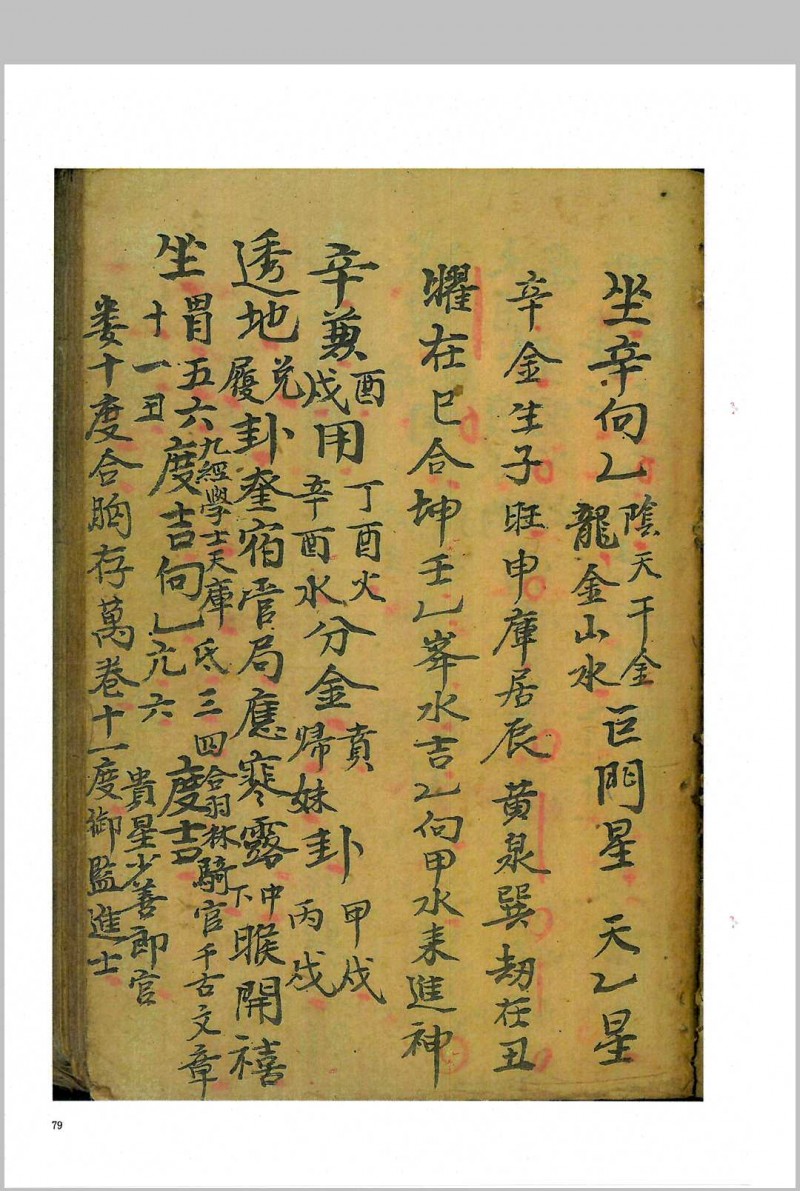 坐辛向乙陰天干金龍金山水巨門星 天乙星
辛金生子旺申庫居辰 黃泉巽劫在丑
燿在巳合坤壬乙峯水吉乙向甲水来進神
辛兼酉戍用丁酉火辛酉水分金賁歸妹卦甲戍丙戍
透地兑履卦奎宿管局應寒露中下睺開禧
坐胃五六度吉向乚氐三四亢六度吉合羽林騎官千古文章
十一丑九經學士天庫貴星少善郎官
娄十度合胸存萬卷十一度御監進士
79